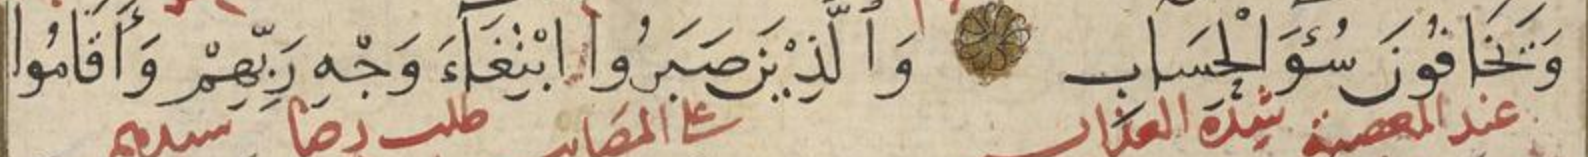 وَيَخَافُونَ سُوۤءَ الْحِسَابِ وَٱلَّذِيْنَ صَبَرُوا ابْتِغَاۤءَ وَجْهِ رَبِّهِمْ وَأَقَامُوا
عند المعصية شدة العذاب على المصايب طلب رضا سيدهم